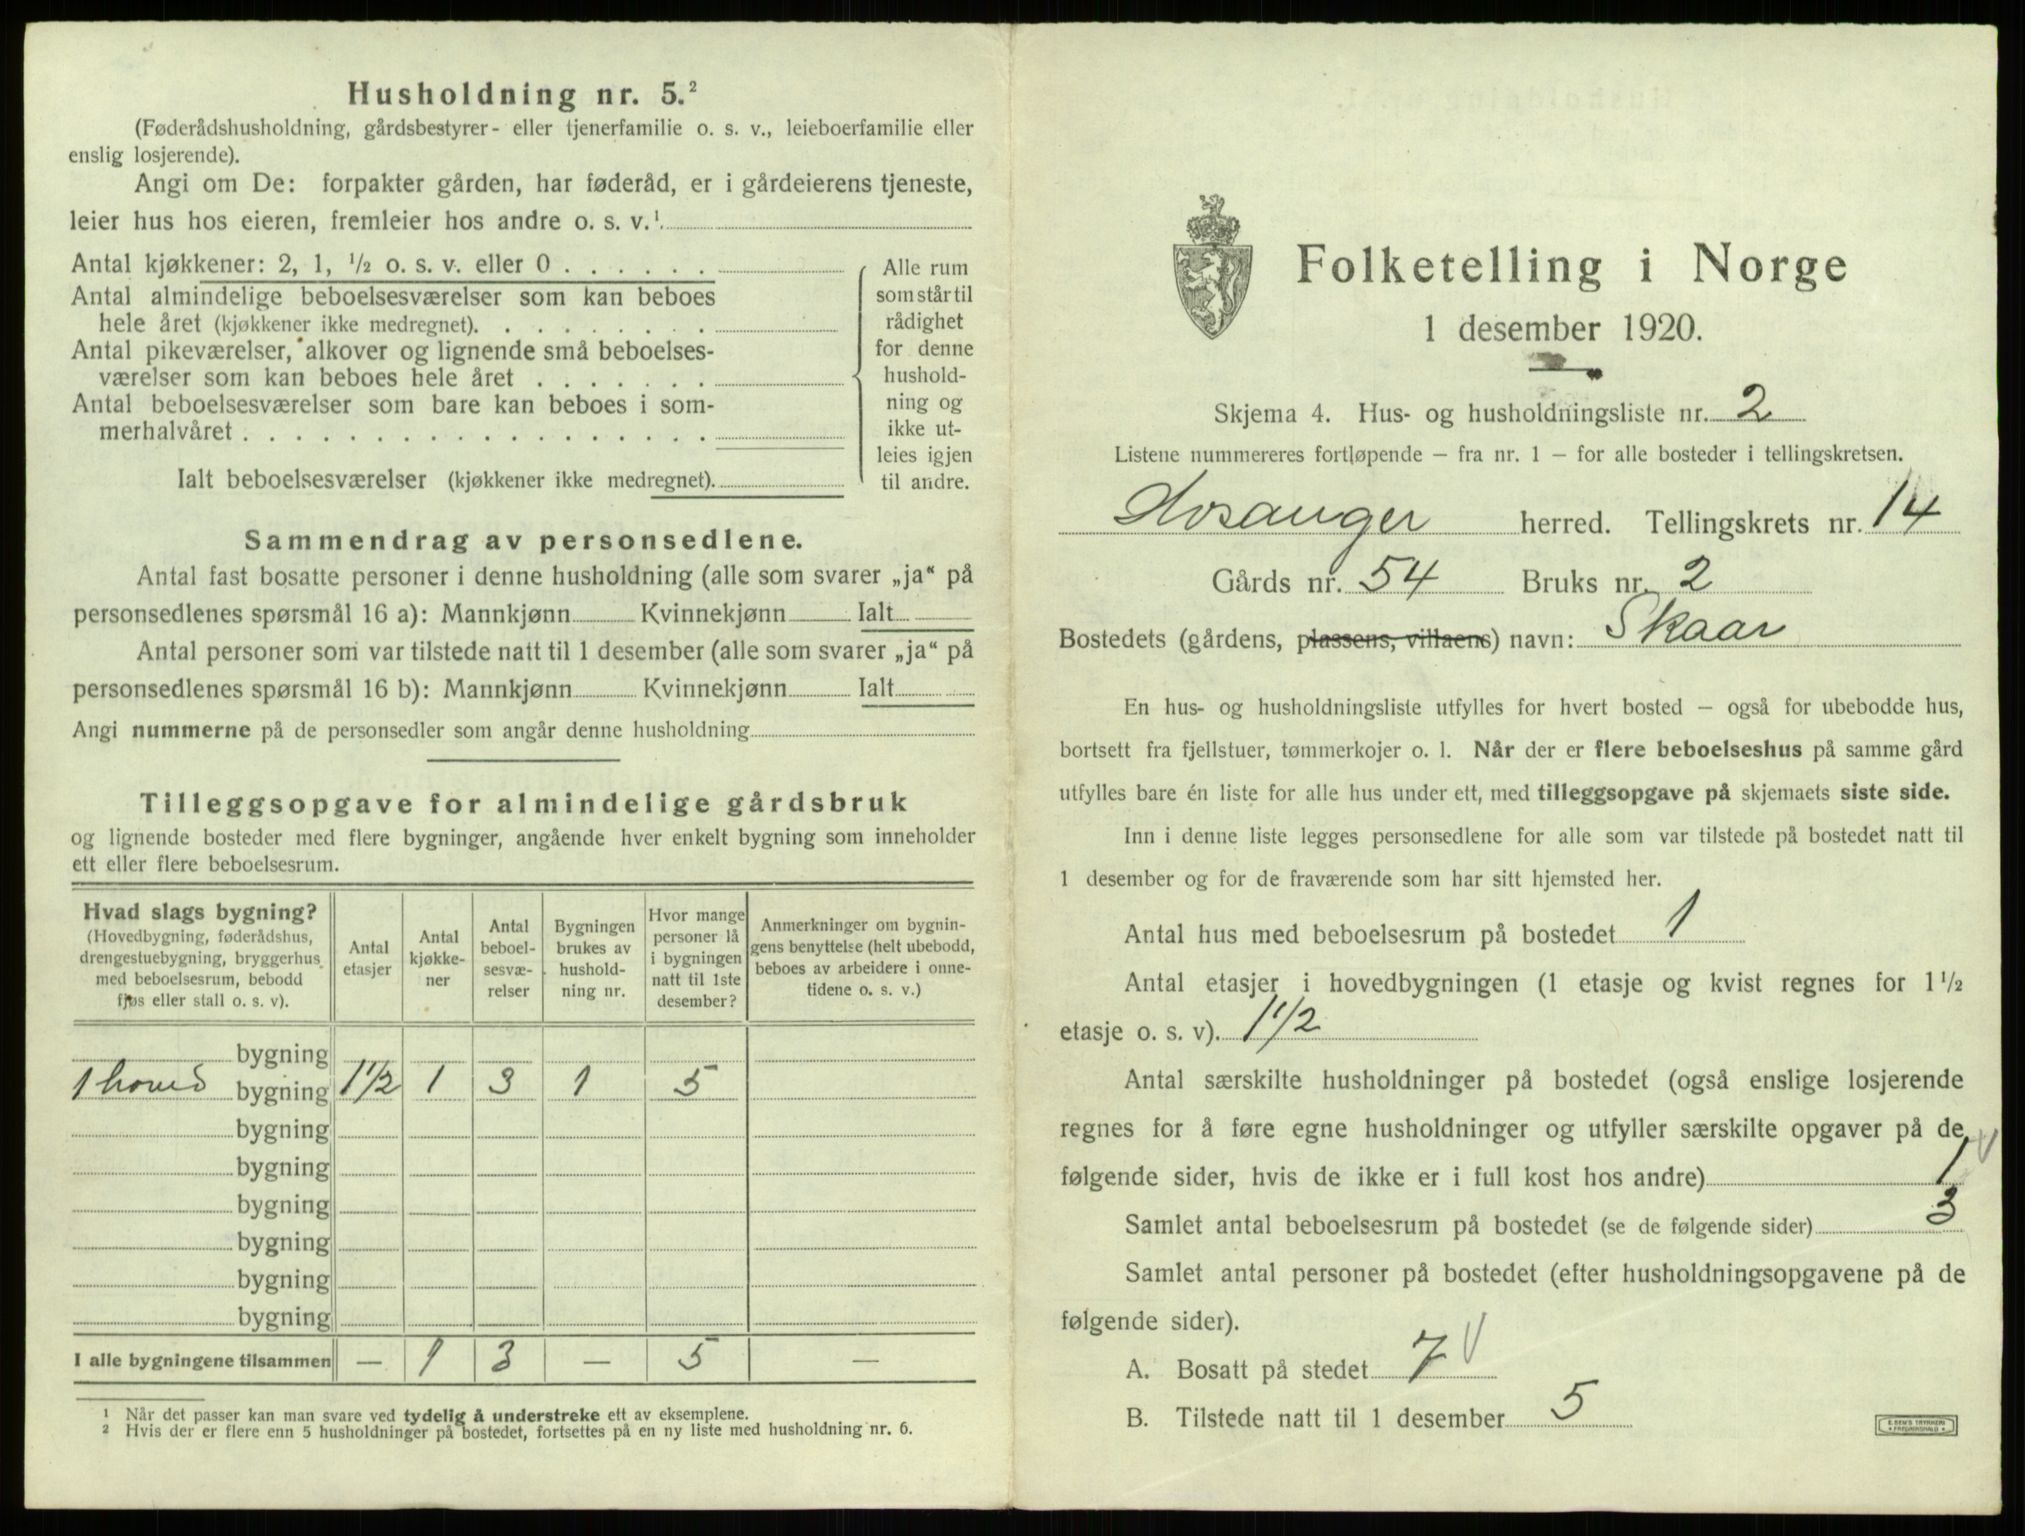 Husholdning nr. 5.²
(Føderådshusholdning, gårdsbestyrer- eller tjenerfamilie o. s. v., leieboerfamilie eller
enslig losjerende).
Angi om De: forpakter gården, har føderåd, er i gårdeierens tjeneste,
leier hus hos eieren, fremleier hos andre o. s. v.¹
Antal kjøkkener: 2, 1, ½ o. s. v. eller 0 . . . . . .
Antal almindelige beboelsesværelser som kan beboes
hele året (kjøkkener ikke medregnet). . . . . . . . .
Antal pikeværelser, alkover og lignende små beboelses-
værelser som kan beboes hele året . . . . . . .
Antal beboelsesværelser som bare kan beboes i som-
merhalvåret . . . . . . . . . . . . . . . . . .
Ialt beboelsesværelser (kjøkkener ikke medregnet).
Alle rum
som står til
rådighet
for denne
hushold-
ning og
ikke ut-
leies igjen
til andre.
Sammendrag av personsedlene.
Antal fast bosatte personer i denne husholdning (alle som svarer „ja“ på
personsedlenes spørsmål 16 a): Mannkjønn Kvinnekjønn Ialt
Antal personer som var tilstede natt til 1 desember (alle som svarer „ja“ på
personsedlenes spørsmål 16 b): Mannkjønn Kvinnekjønn Ialt
Angi nummerne på de personsedler som angår denne husholdning
Tilleggsopgave for almindelige gårdsbruk
og lignende bosteder med flere bygninger, angående hver enkelt bygning som inneholder
ett eller flere beboelsesrum.
Hvad slags bygning?
(Hovedbygning, føderådshus,
drengestuebygning, bryggerhus
med beboelsesrum, bebodd
fjøs eller stall o. s. v).
Antal
etasjer
Antal
kjøkke-
ner
Antal
beboel-
sesvæ-
relser
Bygningen
brukes av
hushold-
ning nr.
Hvor mange
personer lå
i bygningen
natt til 1ste
desember?
Anmerkninger om bygnin-
gens benyttelse (helt ubebodd,
beboes av arbeidere i onne-
tidene o. s. v.)
bygning
1 hoved bygning 1½ 1 3 1 5
bygning
bygning
bygning
bygning
bygning
bygning
I alle bygningene tilsammen — 1 3 — 5 —
¹ Når det passer kan man svare ved tydelig å understreke ett av eksemplene.
² Hvis der er flere enn 5 husholdninger på bostedet, fortsettes på en ny liste med husholdning nr. 6.
Folketelling i Norge
1 desember 1920.
Skjema 4. Hus- og husholdningsliste nr. 2
Listene nummereres fortløpende – fra nr. 1 – for alle bosteder i tellingskretsen.
Hosanger herred. Tellingskrets nr. 14
Gårds nr. 54 Bruks nr. 2
Bostedets (gårdens, plassens, villaens) navn: Skaar
En hus- og husholdningsliste utfylles for hvert bosted – også for ubebodde hus,
bortsett fra fjellstuer, tømmerkojer o. l. Når der er flere beboelseshus på samme gård
utfylles bare én liste for alle hus under ett, med tilleggsopgave på skjemaets siste side.
Inn i denne liste legges personsedlene for alle som var tilstede på bostedet natt til
1 desember og for de fraværende som har sitt hjemsted her.
Antal hus med beboelsesrum på bostedet 1
Antal etasjer i hovedbygningen (1 etasje og kvist regnes for 1½
etasje o. s. v). 1½
Antal særskilte husholdninger på bostedet (også enslige losjerende
regnes for å føre egne husholdninger og utfyller særskilte opgaver på de
følgende sider, hvis de ikke er i full kost hos andre) 1 V
Samlet antal beboelsesrum på bostedet (se de følgende sider) 3
Samlet antal personer på bostedet (efter husholdningsopgavene på de
følgende sider).
A. Bosatt på stedet 7 V
B. Tilstede natt til 1 desember 5
E. SEM'S TRYKKERI
• FREDRIKSHALD •